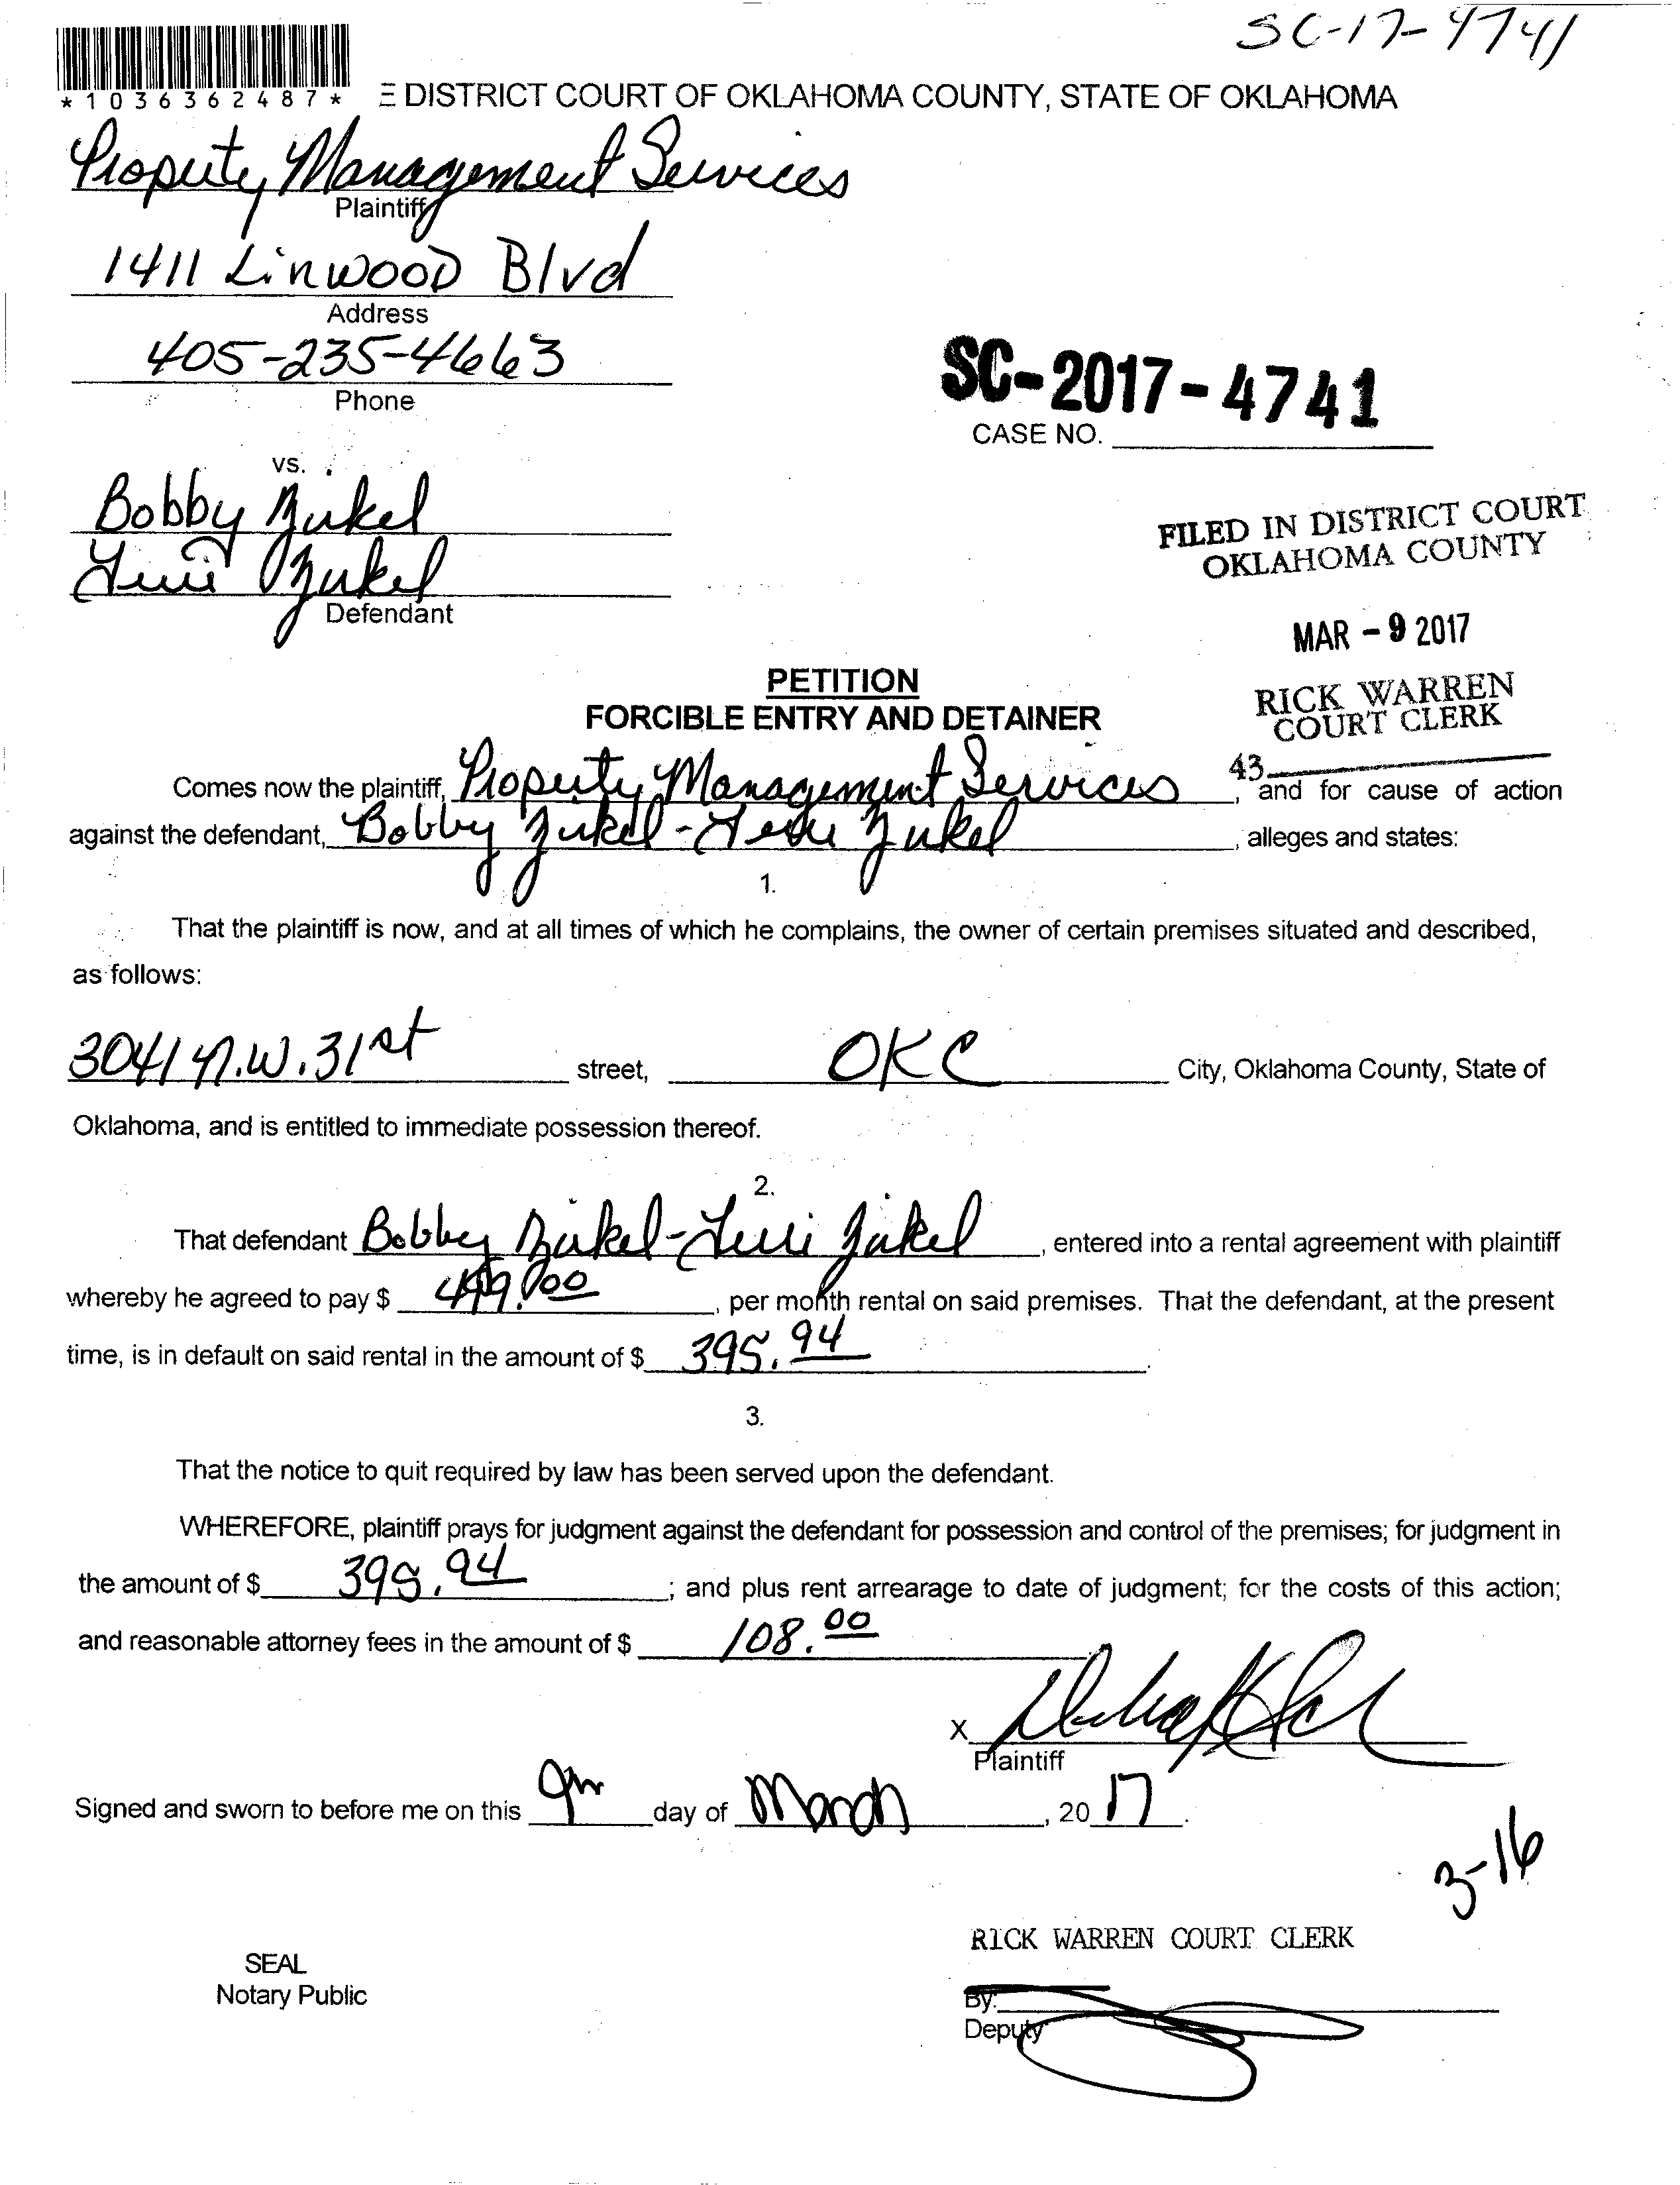 SC-17-4741
*1036362487*
E DISTRICT COURT OF OKLAHOMA COUNTY, STATE OF OKLAHOMA
Property Management Services
Plaintiff
1411 Linwood Blvd
Address
405-235-4663
Phone
SC-2017-4741
CASE NO.
vs.
Bobby Zirkel
Terri Zirkel
Defendant
FILED IN DISTRICT COURT
OKLAHOMA COUNTY
MAR - 9 2017
RICK WARREN
COURT CLERK
43
PETITION
FORCIBLE ENTRY AND DETAINER
Comes now the plaintiff, Property Management Services, and for cause of action
against the defendant, Bobby Zirkel - Terri Zirkel, alleges and states:
1.
That the plaintiff is now, and at all times of which he complains, the owner of certain premises situated and described,
as follows:
3041 N.W. 31st street, OKC City, Oklahoma County, State of
Oklahoma, and is entitled to immediate possession thereof.
2.
That defendant Bobby Zirkel - Terri Zirkel, entered into a rental agreement with plaintiff
whereby he agreed to pay $ , per month rental on said premises. That the defendant, at the present
time, is in default on said rental in the amount of $ 395.94.
3.
That the notice to quit required by law has been served upon the defendant.
WHEREFORE, plaintiff prays for judgment against the defendant for possession and control of the premises; for judgment in
the amount of $ 395.94; and plus rent arrearage to date of judgment; for the costs of this action;
and reasonable attorney fees in the amount of $ 108.00
X
Plaintiff
Signed and sworn to before me on this 9th day of March, 2017.
3-16
RICK WARREN COURT CLERK
SEAL
Notary Public
By:
Deputy